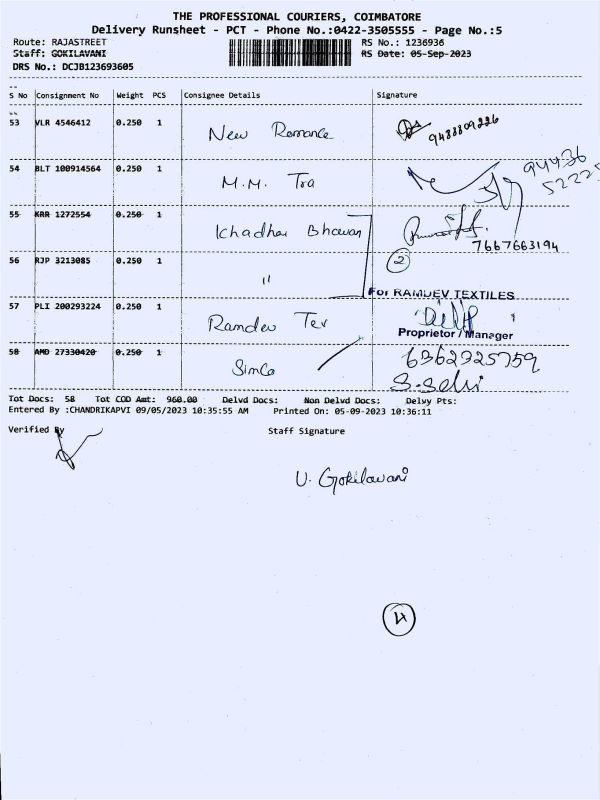 THE PROFESSIONAL COURIERS, COIMBATORE
Delivery Runsheet - PCT - Phone No.:0422-3505555 - Page No.:5
Route: RAJASTREET RS No.: 1236936
Staff: GOKILAVANI RS Date: 05-Sep-2023
DRS No.: DCJB123693605
S No Consignment No Weight PCS Consignee Details Signature
53 VLR 4546412 0.250 1 New Romance 9488809226
54 BLT 100914564 0.250 1 M.M. Tra 94436 52225
55 KRR 1272554 0.250 1 Khadhar Bhavan 7667663194
56 RJP 3213085 0.250 1 " 2
For RAMDEV TEXTILES
57 PLI 200293224 0.250 1 Ramdev Tex
Proprietor / Manager
58 AMD 27330420 0.250 1 Simco 6362325759
S. Selvi
Tot Docs: 58 Tot COD Amt: 960.00 Delvd Docs: Non Delvd Docs: Delvy Pts:
Entered By :CHANDRIKAPVI 09/05/2023 10:35:55 AM Printed On: 05-09-2023 10:36:11
Verified By Staff Signature
U. Gokilavani